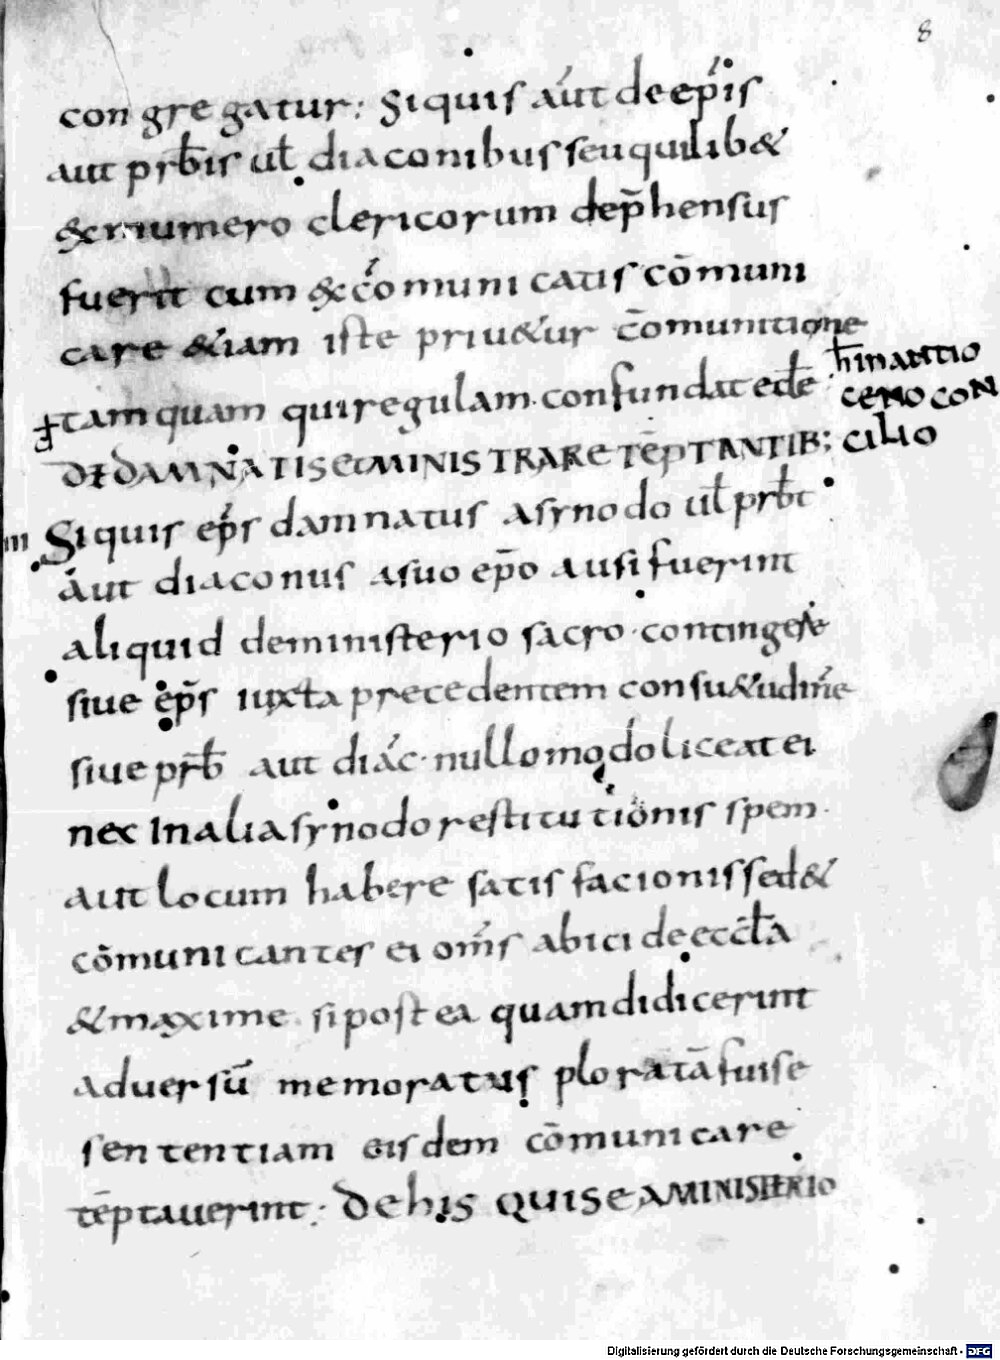 8
congregatur; Siquis aut de ep̄is
aut prb̄is ul̄ diaconibus seu quilib&
& numero clericorum dep̄hensus
fuerit cum excōmunicatis cōmuni
care &iam iste priu&ur cōmunicione
tam quam qui regulam confundat eccl̄e
h̄ in antio
ceno con
cilio
DE DAMNATIS ET MINISTRARE TĒPTANTIB;
III Siquis ep̄s damnatus a synodo ul̄ prb̄t
aut diaconus a suo ep̄o ausi fuerint
aliquid de ministerio sacro contingere
siue ep̄s iuxta precedentem consu&udinē
siue pr̄b aut diac̄ nullo modo liceat ei
nec in alia synodo restitutionis spem
aut locum habere satisfacionis sed&
cōmunicantes ei om̄s abici de eccl̄a
& maxime si postea quam didicerint
aduersū memoratus ploratā fuise
sententiam eisdem cōmunicare
tēptauerint; De his qui se a ministerio
Digitalisierung gefördert durch die Deutsche Forschungsgemeinschaft - DFG